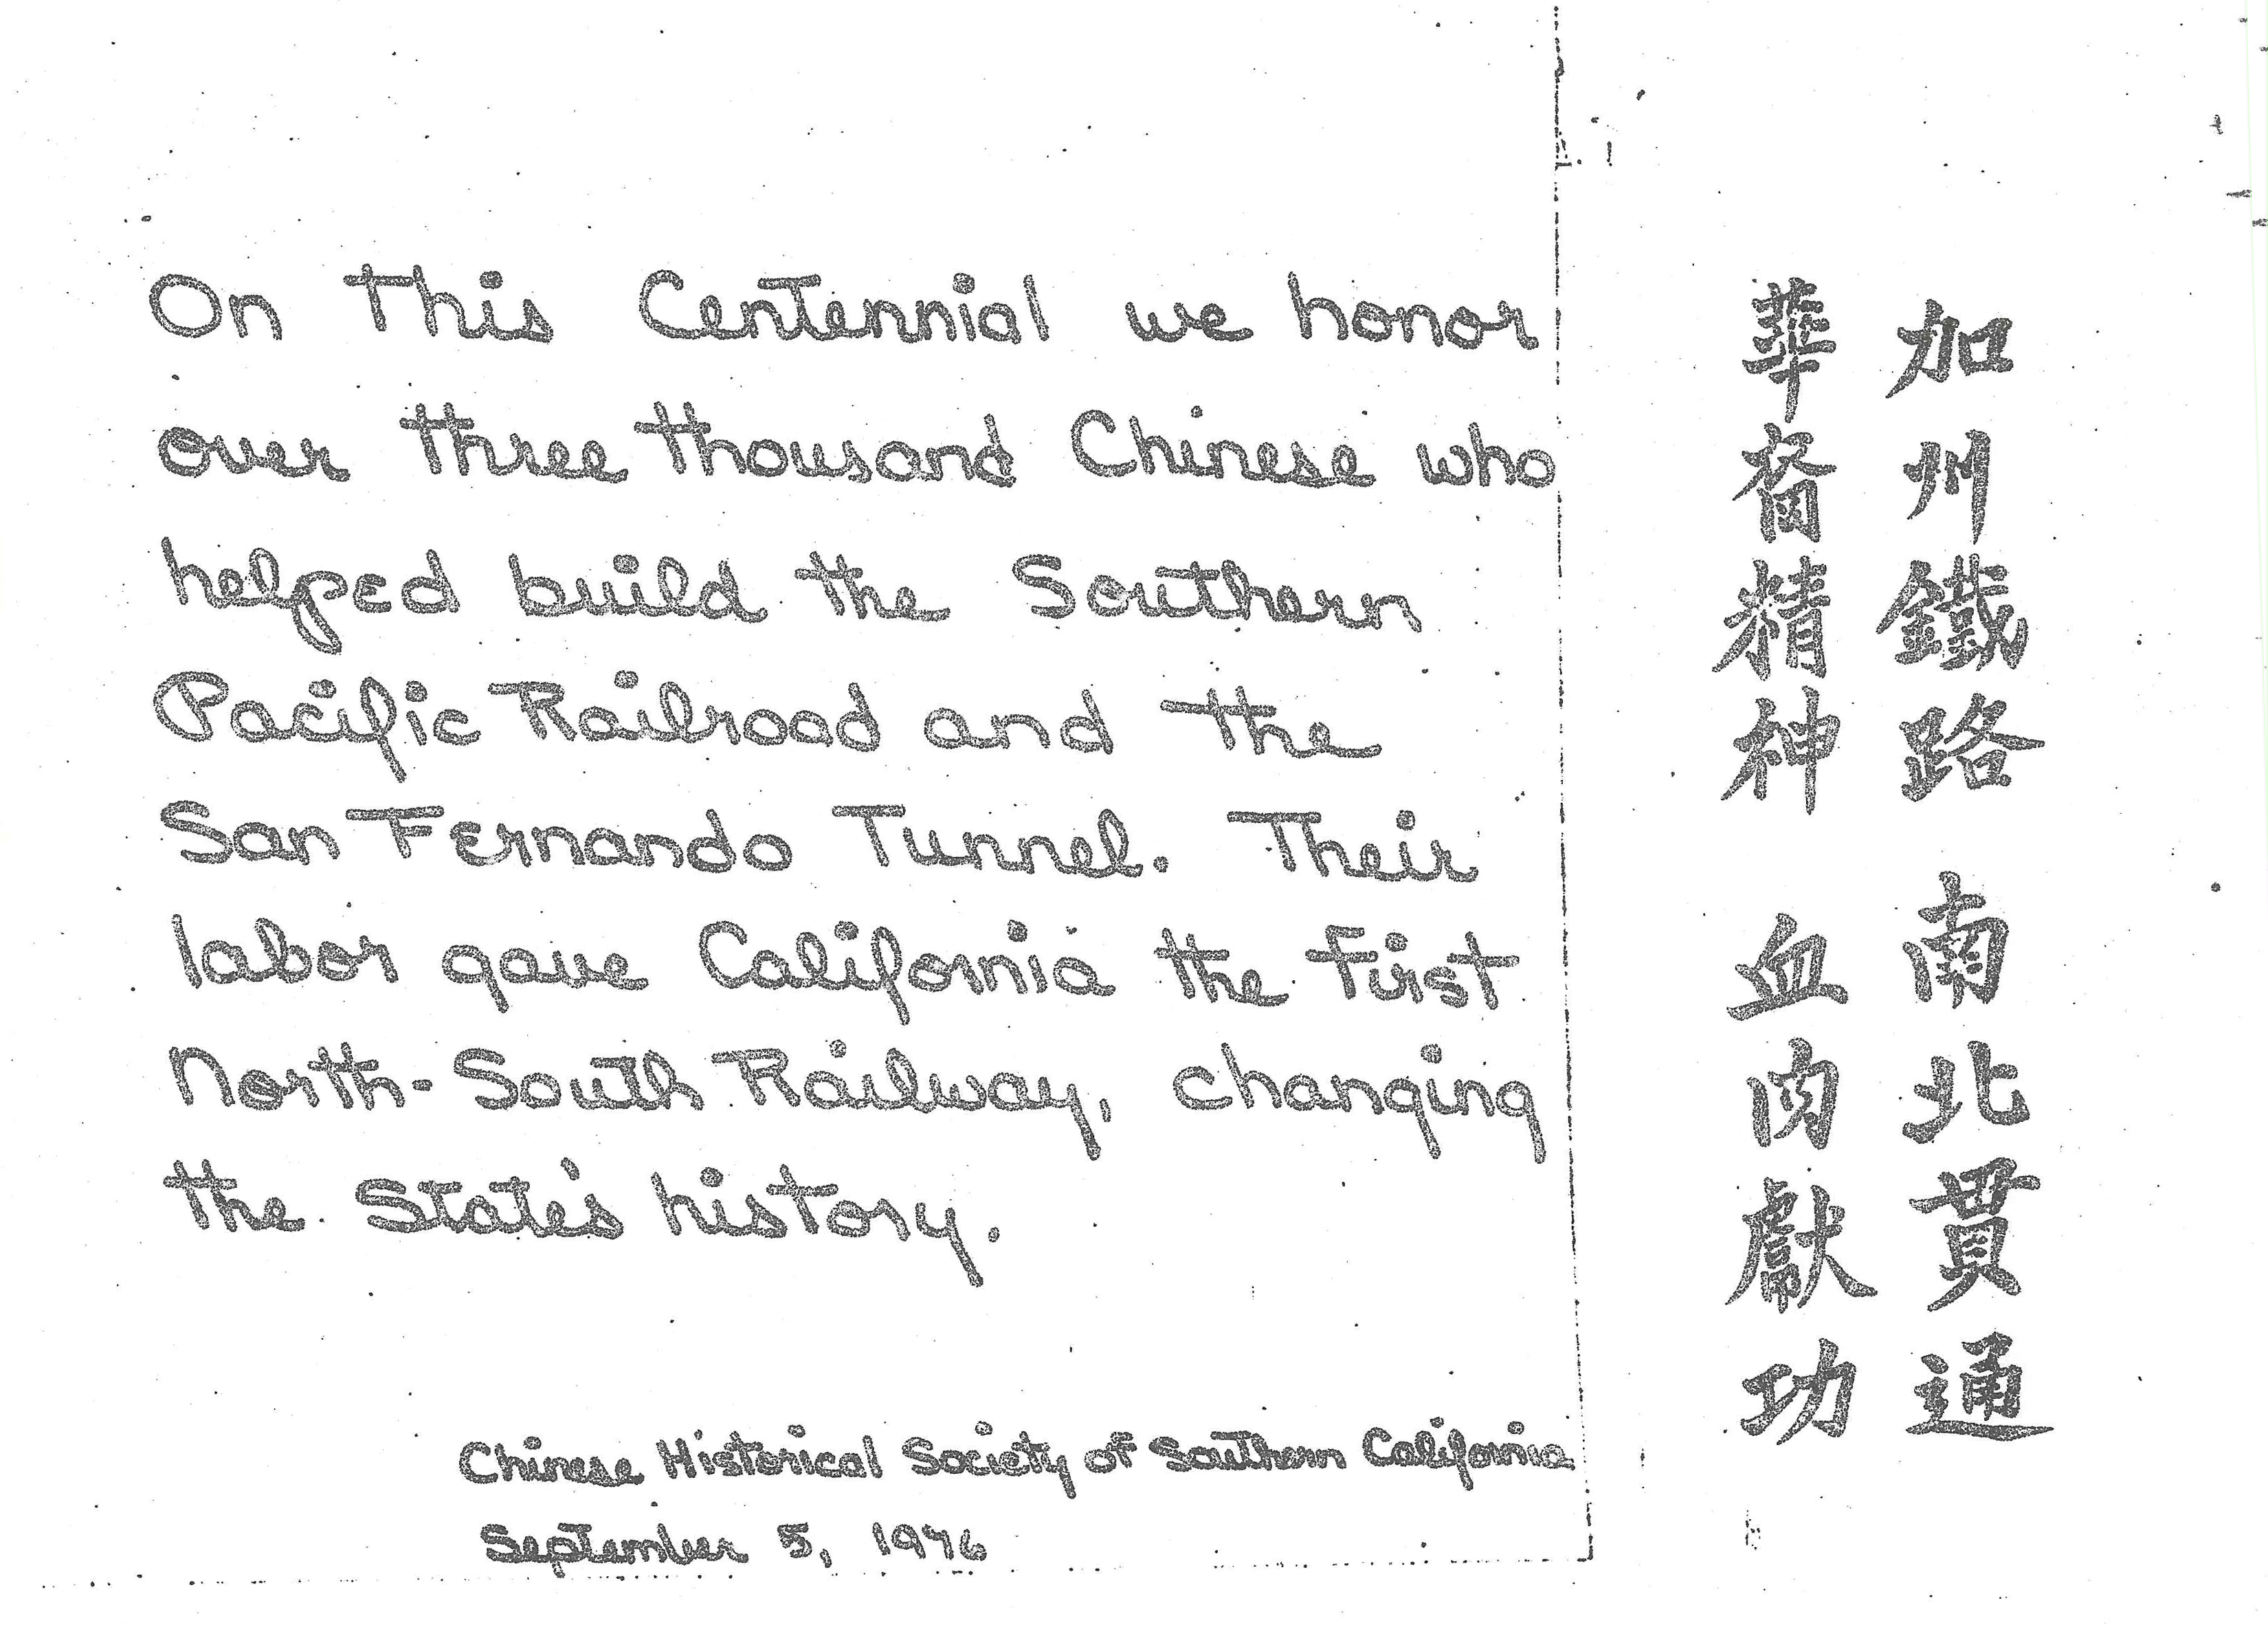 On This Centennial we honor
over three thousand Chinese who
helped build the Southern
Pacific Railroad and the
San Fernando Tunnel. Their
labor gave California the first
North-South Railway, changing
the State's history.
Chinese Historical Society of Southern California
September 5, 1976
加州鐵路 南北貫通
華裔精神 血肉獻功